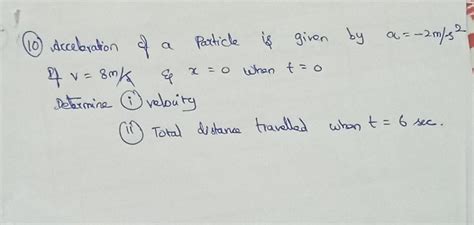 ⑩ Acceleration of a Particle is given by a = -2m/s²
If v = 8m/s & x = 0 when t = 0
Determine ⓘ velocity
ⓘⓘ Total distance travelled when t = 6 sec.